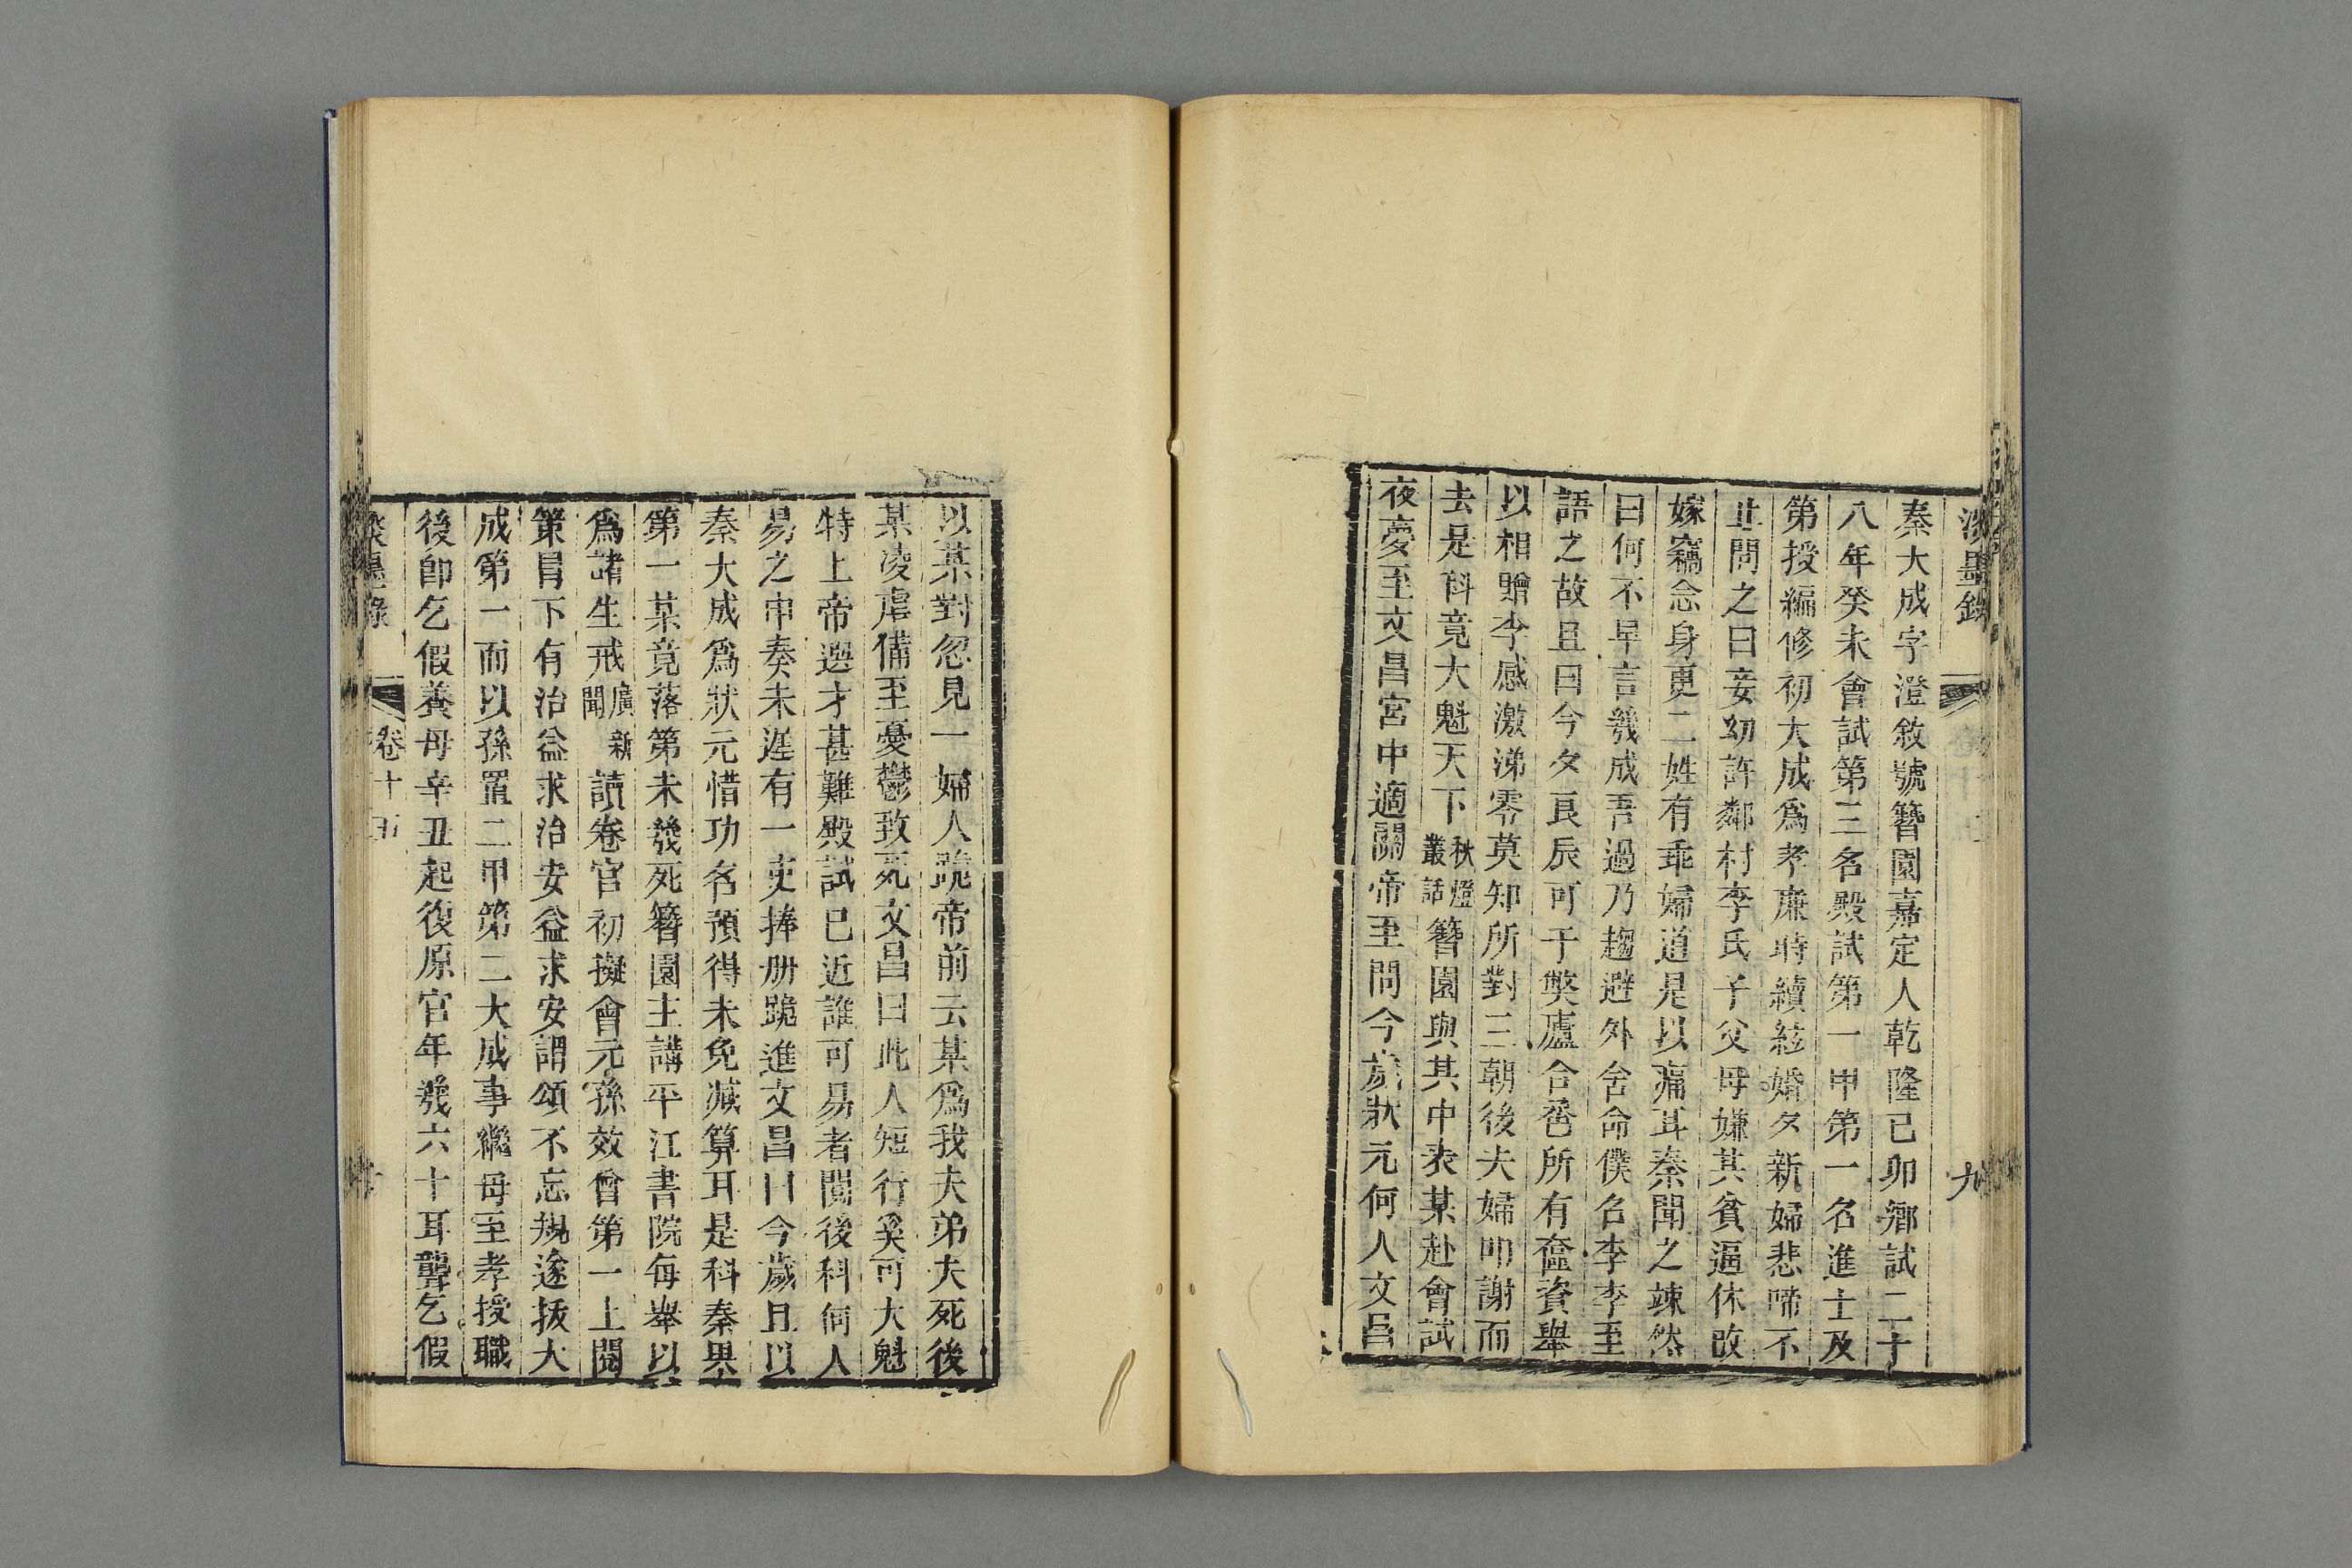 九
秦大成字澄敘號簪園嘉定人乾隆己卯鄉試二十
八年癸未會試第三名殿試第一甲第一名進士及
第授編修初大成爲孝廉時續絃婚夕新婦悲啼不
止問之曰妾幼許鄰村李氏子父母嫌其貧逼休改
嫁竊念身更二姓有乖婦道是以痛耳秦聞之竦然
曰何不早言幾成吾過乃趨避外舍命僕名李李至
語之故且曰今夕良辰可于獘廬合卺所有奩資舉
以相贈李感激涕零莫知所對三朝後夫婦叩謝而
去是科竟大魁天下秋燈叢話簪園與其中表某赴會試
夜夢至文昌宮中適關帝至問今歲狀元何人文昌
以某對忽見一婦人跪帝前云某爲我夫弟夫死後
某凌虐備至憂鬱致死文昌曰此人短行奚可大魁
特上帝選才甚難殿試已近誰可易者閱後科何人
易之申奏未遲有一吏捧册跪進文昌曰今歲且以
秦大成爲狀元惜功名預得未免減算耳是科秦果
第一某竟落第未幾死簪園主講平江書院每舉以
爲諸生戒廣新聞讀卷官初擬會元孫效曾第一上閱
策冒下有治益求治安益求安謂頌不忘規遂拔大
成第一而以孫置二甲第二大成事繼母至孝授職
後卽乞假養母辛丑起復原官年幾六十耳聾乞假
卷十五